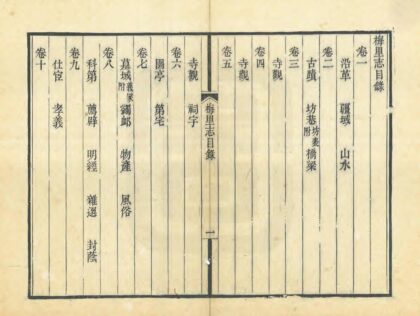 梅里志目錄
卷一
沿革 疆域 山水
卷二
古蹟 坊巷 坊表附 橋梁
卷三
寺觀
卷四
寺觀
卷五
梅里志目錄 一
寺觀 祠宇
卷六
園亭 第宅
卷七
墓域 義冢附 蠲卹 物產 風俗
卷八
科第 薦辟 明經 雜選 封蔭
卷九
仕宦 孝義
卷十